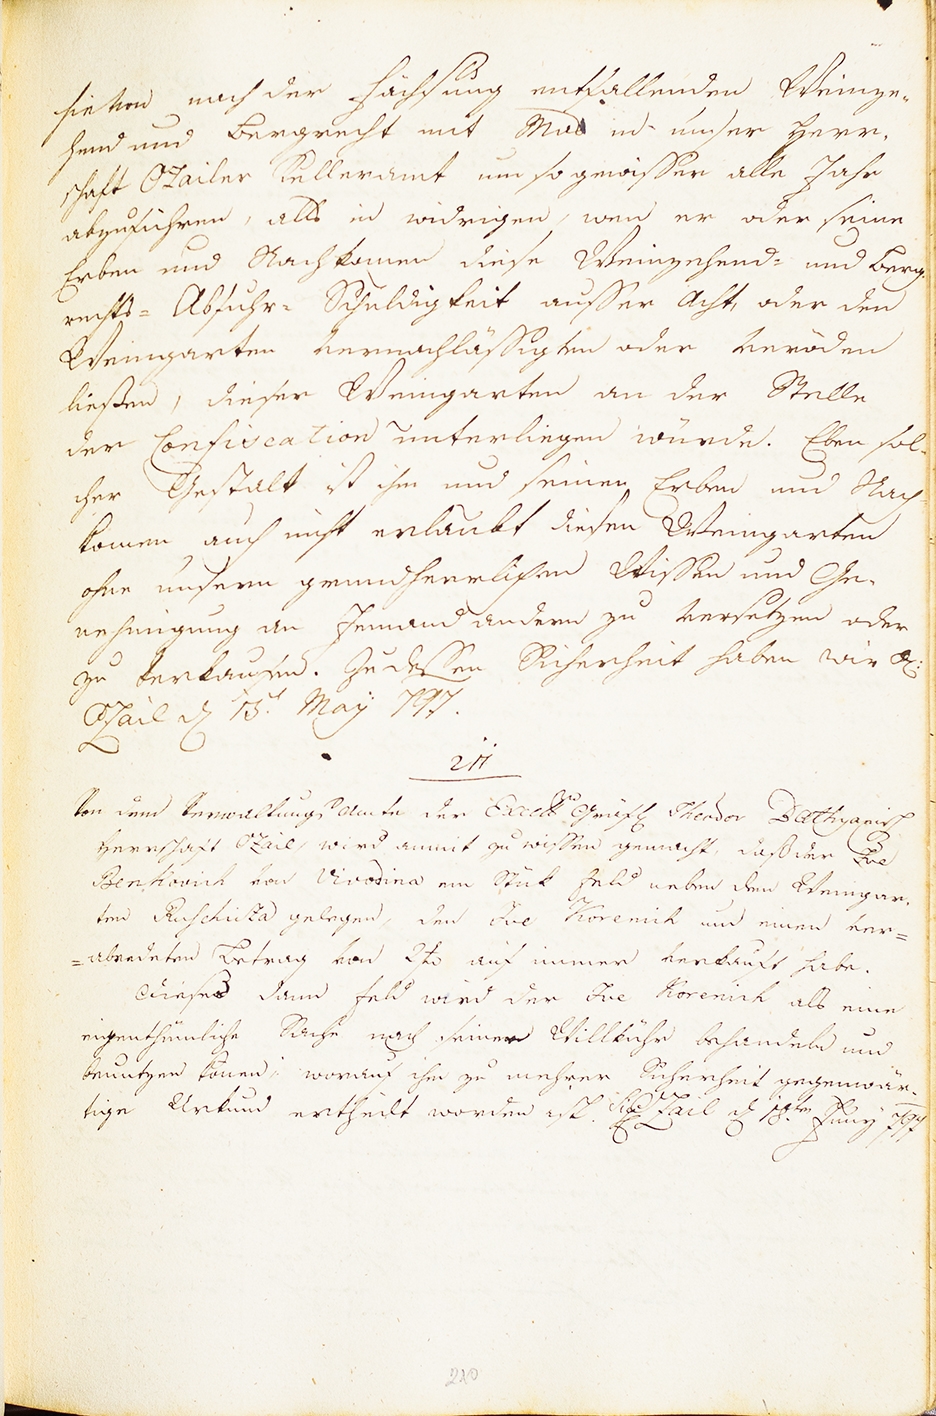 hievon nach der Fächsung entfallenden Weinze-
hend und Bergrecht mit Most in unser Herr-
schaft Ozailer Kelleramt um so gewisser alle Jahr
abzuführen, alls in widrigen, wen er oder seine
Erben und Nachkomen diese Weinzehend- und Berg-
rechts- Abfuhr- Schuldigkeit ausser Acht, oder den
Weingarten vernachlässigten oder veröden
ließen, dieser Weingarten an der Stelle
der Confiscation unterliegen würde. Eben sol-
cher Gestalt ist ihm und seinen Erben und Nach-
komen auch nicht erlaubt diesen Weingarten
ohne unsern grundherrlichen Wissen und Ge-
nehmigung an Jemand andern zu versetzen oder
zu verkaufen. Zu dessen Sicherheit haben wir &:
Ozail d 13t May 797.
211
Von dem Verwaltungs Amte der Excell Gräfl Theodor Bathyanisch
Herrschaft Ozail, wird anmit zu wissen gemacht, daß der Ive
Benkovich von Vivodina ein Stük Feld neben dem Weingar-
ten Ruschicza gelegen, den Ive Korenich um einen ver=
=abredeten Betrag von 2 f auf immer verkauft habe.
Dieses dann Feld wird der Ive Korenich als eine
eigenthümliche Sache nach seinen Willkühr behandeln und
benutzen könen, worauf ihm zu mehrer Sicherheit gegenwär-
tige Urkund ertheilt worden ist. Sig Ozail d 18ten Juny 797
210